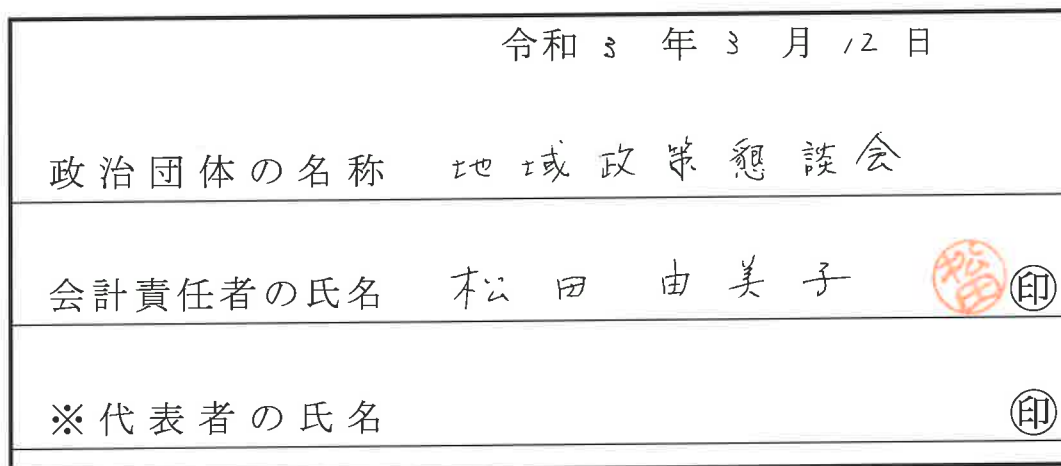 令和 3 年 3 月 12 日
政治団体の名称 地域政策懇談会
会計責任者の氏名 松田 由美子 松田 ㊞
※代表者の氏名 ㊞